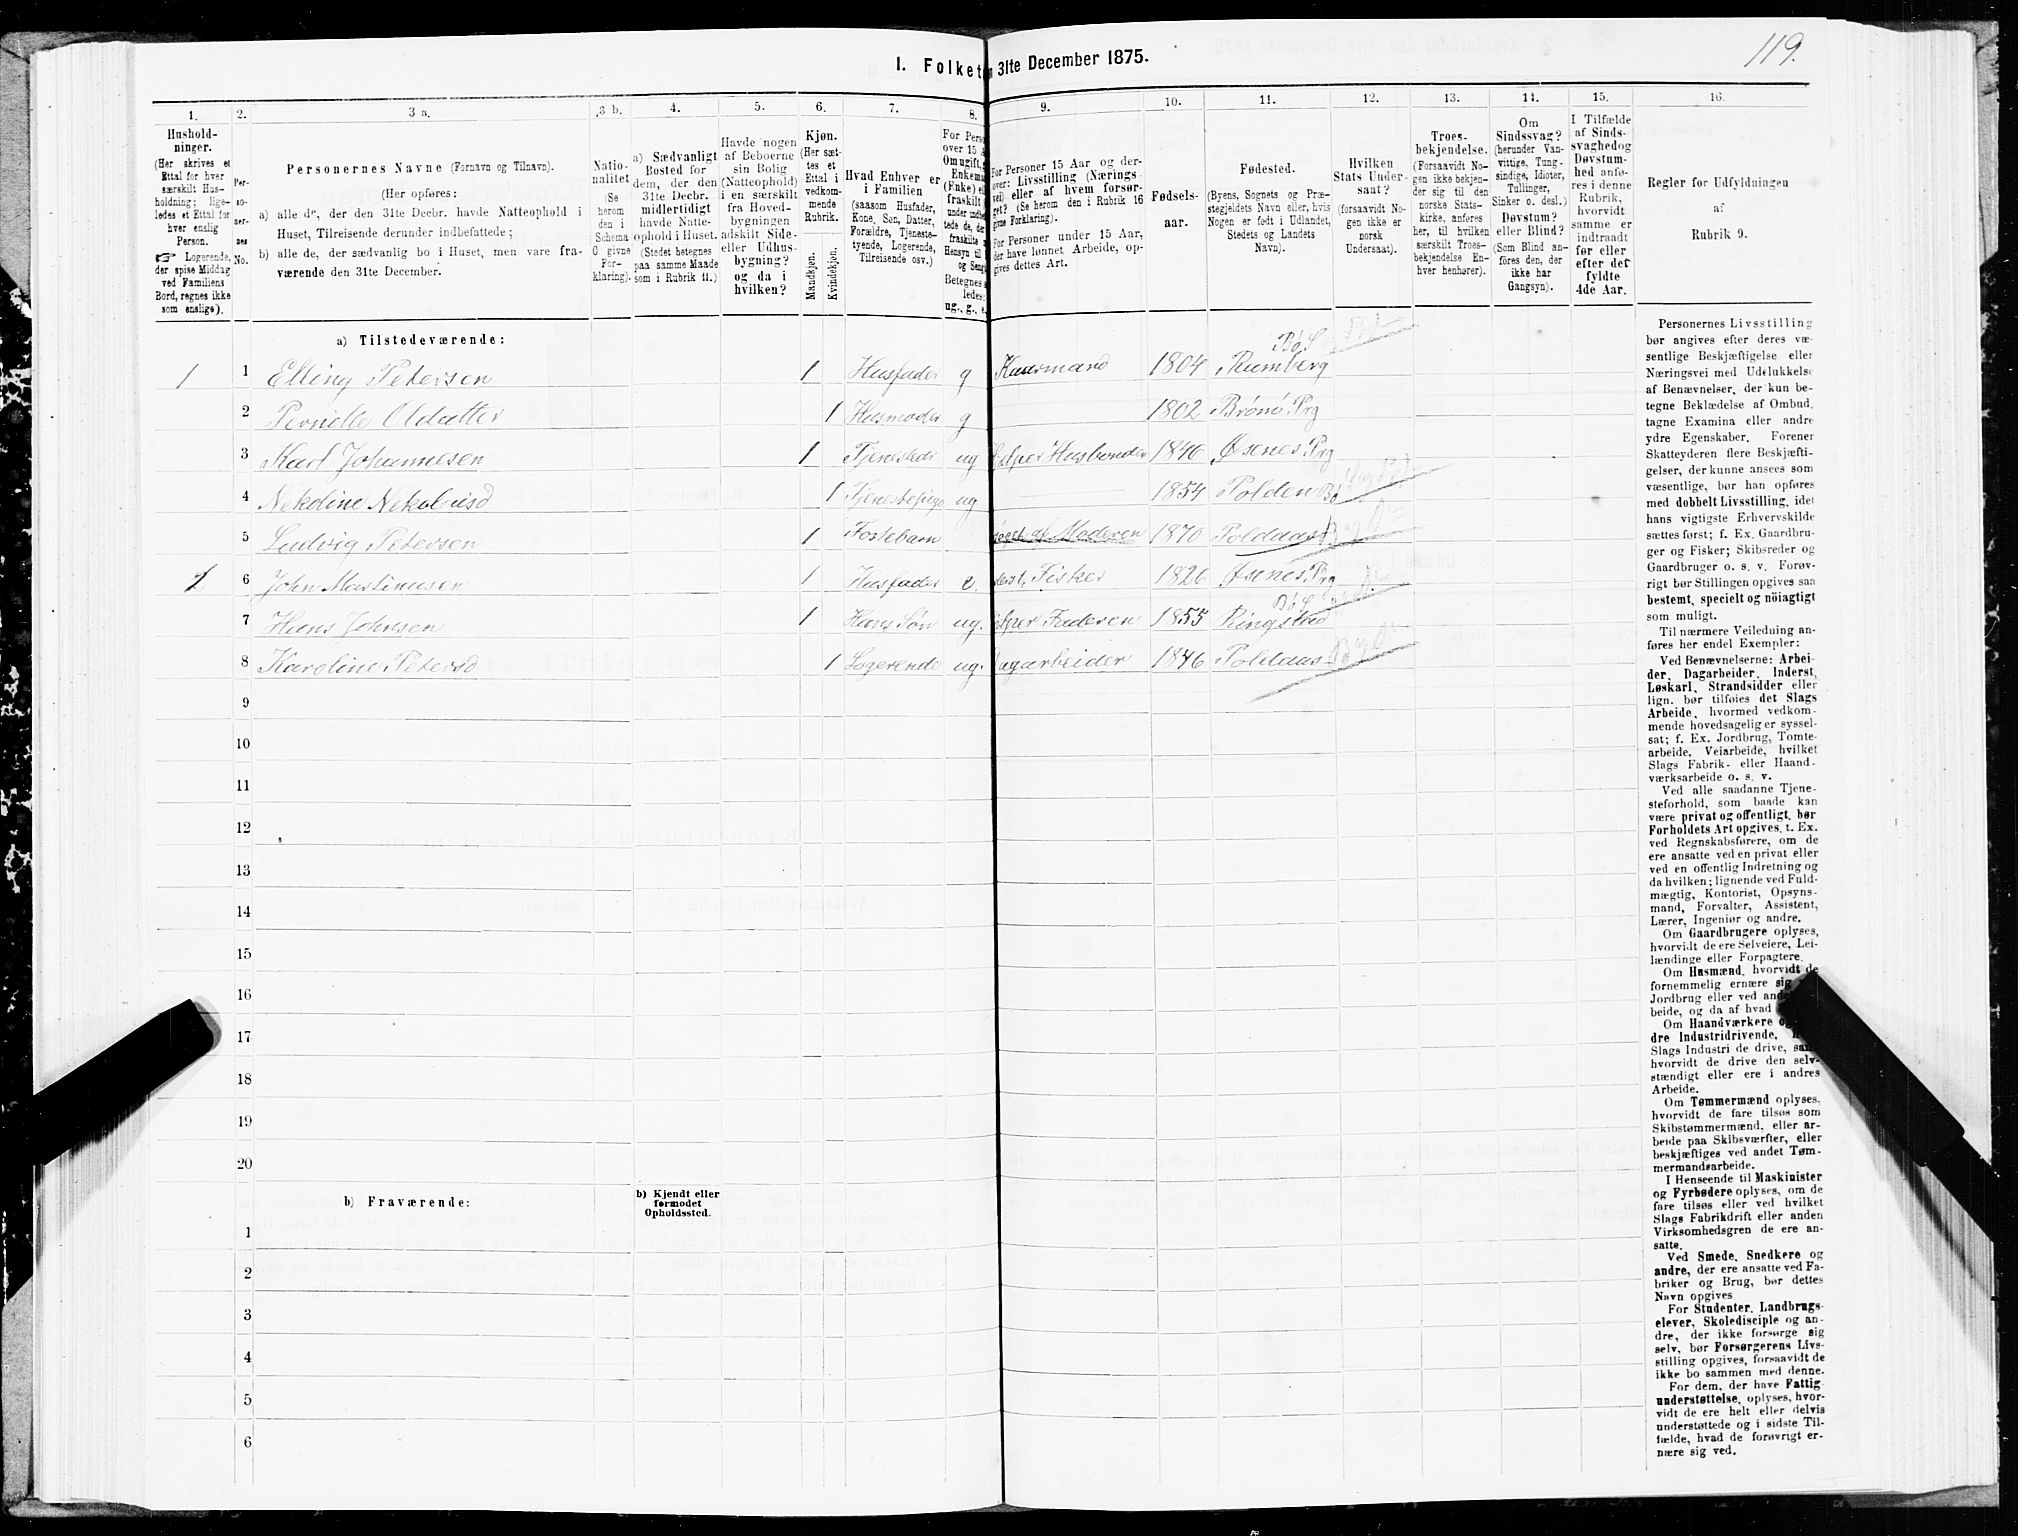 119.
I. Folket
n 31te December 1875.
1. 2. 3 a. 3 b. 4. 5. 6. 7. 8. 9. 10. 11. 12. 13. 14. 15. 16.
Hushold-
ninger.
(Her skrives et
Ettal for hver
særskilt Hus-
holdning; lige-
ledes et Ettal for
hver enslig
Person.
☞ Logerende,
der spise Middag
ved Familiens
Bord, regnes ikke
som enslige).
Per-
so-
ner-
nes
No.
Personernes Navne (Fornavn og Tilnavn).
(Her opføres:
a) alle de, der den 31te Decbr. havde Natteophold i
Huset, Tilreisende derunder indbefattede;
b) alle de, der sædvanlig bo i Huset, men vare fra-
værende den 31te December.
Natio-
nalitet
(Se
herom
den i
Schema
O givne
For-
klaring).
a) Sædvanligt
Bosted for
dem, der den
31te Decbr.
midlertidigt
havde Natte-
ophold i Huset.
(Stedet betegnes
paa samme Maade
som i Rubrik 11.)
Havde nogen
af Beboerne
sin Bolig
(Natteophold)
i en særskilt
fra Hoved-
bygningen
adskilt Side-
eller Udhus-
bygning?
og da i
hvilken?
Kjøn.
(Her sæt-
tes et
Ettal i
vedkom-
mende
Rubrik.
Mandkjøn.
Kvindekjøn.
Hvad Enhver er
i Familien
(saasom Husfader,
Kone, Søn, Datter,
Forældre, Tjeneste-
tyende, Logerende,
Tilreisende osv.)
For Pers
over 15 A
Om ugift, g
Enkema
(Enke) el
fraskilt
under indbe
tede de, der
fraskilte
Hensyn til
og Seng
Betegnes s
ledes;
ug., g., e
For Personer 15 Aar og der-
over: Livsstilling (Nærings-
vei) eller af hvem forsør-
get? (Se herom den i Rubrik 16
givne Forklaring).
For Personer under 15 Aar,
der have lønnet Arbeide, op-
gives dettes Art.
Fødsels-
aar.
Fødested.
(Byens, Sognets og Præ-
stegjeldets Navn eller, hvis
Nogen er født i Udlandet,
Stedets og Landets
Navn).
Hvilken
Stats Under-
saat?
(forsaavidt No-
gen ikke er
norsk
Undersaat).
Troes-
bekjendelse.
(Forsaavidt No-
gen ikke bekjen-
der sig til den
norske Stats-
kirke, anføres
her, til hvilken
særskilt Troes-
bekjendelse En-
hver henhører).
Om
Sindssvag?
(herunder Van-
vittige, Tung-
sindige, Idioter,
Tullinger,
Sinker o. desl.)
Døvstum?
eller Blind?
(Som Blind an-
føres den, der
ikke har
Gangsyn).
I Tilfælde
af Sinds-
svaghed og
Døvstum-
hed anfø-
res i denne
Rubrik,
hvorvidt
samme er
indtraadt
før eller
efter det
fyldte
4de Aar.
Regler for Udfyldningen
af
Rubrik 9.
a) Tilstedeværende:
Bø S
1 1 Elling Petersen 1 Husfader g Kaarmand 1804 Rumberg
2 Pernelle Oldatter 1 Husmoder g 1802 Brønø Prg
3 Karl Johannesen 1 Tjenestedr ug Hjelper Husbonden 1846 Øsenes Prg
4 Nekoline 1 Tjenestepige ug 1854 Polden Bø
5 Ludvig Petersen 1 Fostebarn af Moderen 1870 Poldaas
1 6 John Martinusen 1 Husfader e. Inderst, Fisker 1826 Øsenes Prg
Bø S
7 Hans Johnsen 1 Hans Søn ug. Hjelper Faderen 1855 Ringstad
8 Karoline Petersd 1 Logerende ug. Dagarbeider 1846 Poldaas
9
10
11
12
13
14
15
16
17
18
19
20
b) Fraværende:
b) Kjendt eller
formodet
Opholdssted.
1
2
3
4
5
6
Personernes Livsstilling
bør angives efter deres væ-
sentlige Beskjæftigelse eller
Næringsvei med Udelukkelse
af Benævnelser, der kun be-
tegne Beklædelse af Ombud,
tagne Examina eller andre
ydre Egenskaber. Forener
Skatteyderen flere Beskjæfti-
gelser, der kunne ansees som
væsentlige, bør han opføres
med dobbelt Livsstilling, idet
hans vigtigste Erhvervskilde
sættes først; f. Ex. Gaardbru-
ger og Fisker; Skibsreder og
Gaardbruger o. s. v. Forøv-
rigt bør Stillingen opgives saa
bestemt, specielt og nøiagtigt
som muligt.
Til nærmere Veiledning an-
føres her endel Exempler:
Ved Benævnelserne: Arbei-
der, Dagarbeider, Inderst,
Løskarl, Strandsidder eller
lign. bør tilføies det Slags
Arbeide, hvormed vedkom-
mende hovedsagelig er syssel-
sat; f. Ex. Jordbrug, Tomte-
arbeide, Veiarbeide, hvilket
Slags Fabrik- eller Haand-
værksarbeide o. s. v.
Ved alle saadanne Tjene-
steforhold, som baade kan
være privat og offentligt, bør
Forholdets Art opgives, t. Ex.
ved Regnskabsførere, om de
ere ansatte ved en privat eller
ved en offentlig Indretning og
da hvilken; lignende ved Fuld-
mægtig, Kontorist, Opsyns-
mand, Forvalter, Assistent,
Lærer, Ingeniør og andre.
Om Gaardbrugere oplyses,
hvorvidt de ere Selveiere, Lei-
lændinge eller Forpagtere.
Om Husmænd, hvorvidt de
fornemmelig ernære sig
Jordbrug eller ved
beide, og da af hvad
Om Haandværkere og
dre Industridrivende,
Slags Industri de drive, samt
hvorvidt de drive den selv-
stændigt eller ere i andres
Arbeide.
Om Tømmermænd oplyses,
hvorvidt de fare tilsøs som
Skibstømmermænd, eller ar-
beide paa Skibsværfter, eller
beskjæftiges ved andet Tøm-
mermandsarbeide.
I Henseende til Maskinister
og Fyrbødere oplyses, om de
fare tilsøs eller ved hvilket
Slags Fabrikdrift eller anden
Virksomhedsgren de ere an-
satte.
Ved Smede, Snedkere og
andre, der ere ansatte ved Fa-
briker og Brug, bør dettes
Navn opgives
For Studenter, Landbrugs-
elever, Skoledisciple og an-
dre, der ikke forsørge sig
selv, bør Forsørgerens Livs-
stilling opgives, forsaavidt de
ikke bo sammen med denne.
For dem, der have Fattig-
understøttelse, oplyses, hvor-
vidt de ere helt eller delvis
understøttede og i sidste Til-
fælde, hvad de forøvrigt er-
nære sig ved.